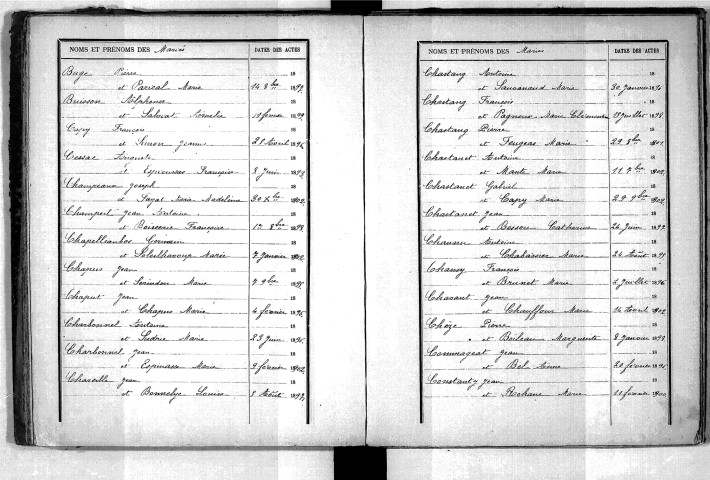 NOMS ET PRÉNOMS DES Mariés DATES DES ACTES
Buge Pierre 18
et Parreal Marie 14 8bre 1899
Buisson Alphonse 18
et Salvrat Amelie 18 février 1899
Capy François 18
et Simon Jeanne 28 Avril 1896
Cessac Auguste 18
et Espinasse Françoise 8 Juin 1899
Champeaux Joseph 18
et Sagal Marie Madeleine 30 Xbre 1902
Champeil Jean Antoine 18
et Boisserie Françoise 12 8bre 1898
Germain 18
et Marie 7 Janvier 1902
Chapus Jean 18
et Marie 7 9bre 1895
Chaput Jean 18
et Chapus Marie 4 février 1896
Charbonnel Antoine 18
et Sudrie Marie 23 Juin 1896
Charbonnel Jean 18
et Espinasse Marie 9 février 1902
Chareille Jean 18
et Bonnelye Louise 8 Août 1893
NOMS ET PRÉNOMS DES Mariés DATES DES ACTES
Chastang Antoine 18
et Sauvanaud Marie 30 Janvier 1894
Chastang François 18
et Pagnon Marie Clémence 18 Juillet 1898
Chastang Pierre 18
et Feugeas Marie 29 8bre 1901
Chastanet Antoine 18
et Maute Marie 11 7bre 1902
Chastanet Gabriel 18
et Capy Marie 29 9bre 1902
Chastanet Jean 18
et Besson Catherine 24 Juin 1893
Antoine 18
et Marie 24 Août 1895
François 18
et Brunet Marie 4 Juillet 1896
Chavant Jean 18
et Chauffour Marie 14 Avril 1902
Chèze Pierre 18
et Boileau Marguerite 8 Janvier 1898
Commageat Jean 18
et Bel Anne 20 février 1895
Constanty Jean 18
et Rohane Marie 11 février 1900